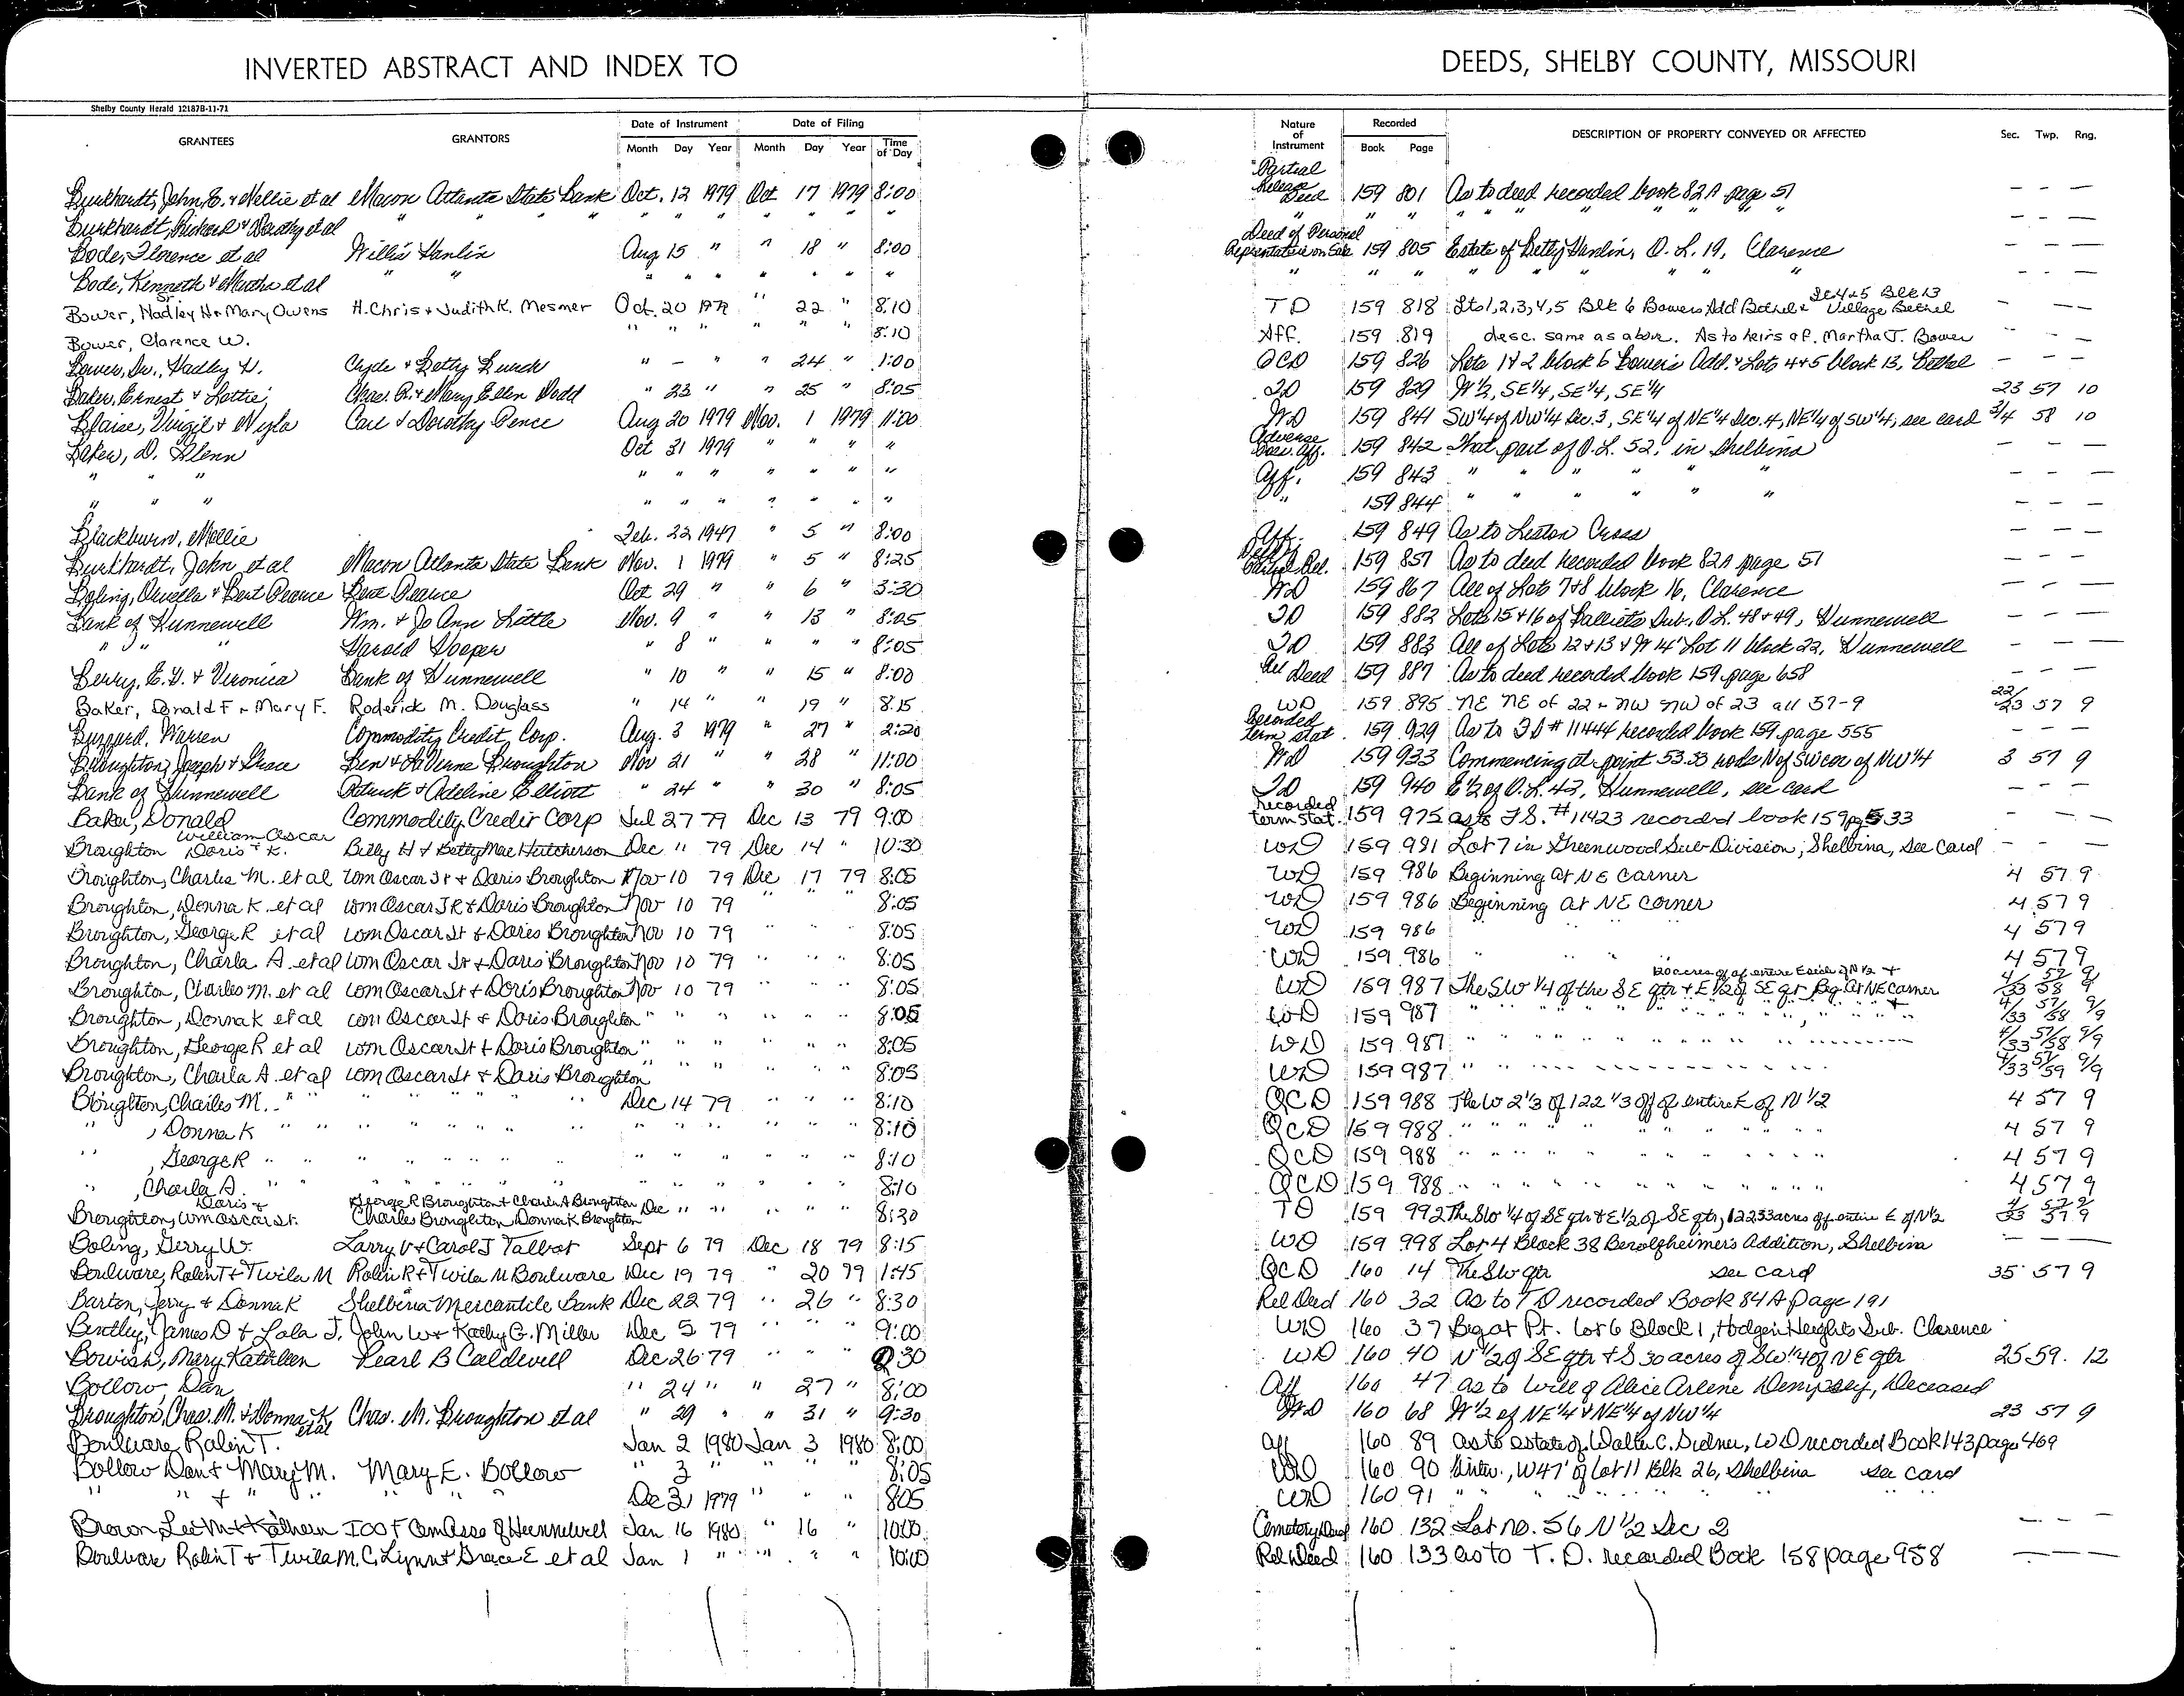 INVERTED ABSTRACT AND INDEX TO DEEDS, SHELBY COUNTY, MISSOURI
Shelby County Herald 12187B-11-71
Date of Instrument Date of Filing Nature of Instrument Recorded
GRANTEES GRANTORS Month Day Year Month Day Year Time of Day Book Page DESCRIPTION OF PROPERTY CONVEYED OR AFFECTED Sec. Twp. Rng.
Burkhardt, John E. & Nellie et al Macon Atlanta State Bank Oct. 12 1979 Oct 17 1979 8:00 Partial Release Deed 159 801 As to deed recorded book 82A page 51 — — —
Burkhardt, Richard & Dorothy et al " " " " " " " " " " " " " " — — —
Bode, Florence et al Willis Hanlin Aug 15 " " 18 " 8:00 Deed of Personal Representative on Sale 159 805 Estate of Betty Hanlin, O.L. 19, Clarence — — —
Bode, Kenneth & Martha et al " " " " " " " " " " " " " — — —
Bower, Hadley H Sr. & Mary Owens H. Chris & Judith K. Mesmer Oct. 20 1979 " 22 " 8:10 TD 159 818 Lts 1,2,3,4,5 Blk 6 Bowers Add Bethel & Lt 4 & 5 Blk 13 Village Bethel — — —
Bower, Clarence W. " " " " " " 8:10 Aff. 159 819 desc. same as above. As to heirs of Martha J. Bower — — —
Bower, Sr., Hadley H. Clyde & Betty Buech " — " " 24 " 1:00 QCD 159 826 Lots 1 & 2 block 6 Bower's Add. & Lots 4 & 5 block 13, Bethel — — —
Baker, Ernest & Lottie Chas. R. & Mary Ellen Dodd " 23 " " 25 " 8:05 TD 159 829 W½, SE¼, SE¼, SE¼ 23 57 10
Blaise, Virgil & Nyla Carl & Dorothy Pence Aug 20 1979 Nov. 1 1979 11:00 WD 159 841 SW¼ of NW¼ Sec. 3, SE¼ of NE¼ Sec. 4, NE¼ of SW¼, see card 3/4 58 10
Baker, D. Glenn Oct 31 1979 " " " " Adverse Poss. Aff. 159 842 That part of O.L. 52, in Shelbina — — —
" " " " " " " " " " Aff. 159 843 " " " " " " — — —
" " " " " " " " " " " 159 844 " " " " " " — — —
Blackburn, Mollie Feb. 22 1947 " 5 " 8:00 Aff. 159 849 As to Leston Cross — — —
Burkhardt, John et al Macon Atlanta State Bank Nov. 1 1979 " 5 " 8:25 Deed of Partial Rel. 159 857 As to deed recorded book 82A page 51 — — —
Boling, Orvella & Bert Pearce Bert Pearce Oct 29 " " 6 " 3:30 WD 159 867 All of Lots 7 & 8 block 16, Clarence — — —
Bank of Hunnewell Wm. & Jo Ann Little Nov. 9 " " 13 " 8:05 TD 159 882 Lots 15 & 16 of Balliets Sub. O.L. 48 & 49, Hunnewell — — —
" " " Harold Hooper " 8 " " " " 8:05 TD 159 883 All of Lots 12 & 13 & W 14' Lot 11 block 22, Hunnewell — — —
Berry, E.G. & Veronica Bank of Hunnewell " 10 " " 15 " 8:00 Rel Deed 159 887 As to deed recorded book 159 page 658 — — —
Baker, Donald F & Mary F. Roderick M. Douglass " 14 " " 19 " 8:15 WD 159 895 NE NE of 22 & NW NW of 23 all 57-9 22/23 57 9
Buzzard, Warren Commodity Credit Corp. Aug. 3 1979 " 27 " 2:20 Recorded Term Stat. 159 929 As to FD # 11444 recorded book 159 page 555 — — —
Broughton, Joseph & Grace Ben & LaVerne Broughton Nov 21 " " 28 " 11:00 WD 159 933 Commencing at point 53.33 rods N of SW cor of NW¼ 3 57 9
Bank of Hunnewell Patrick & Adeline Elliott " 24 " " 30 " 8:05 TD 159 940 E½ of O.L. 42, Hunnewell, see card — — —
Baker, Donald Commodity Credit Corp Jul 27 79 Dec 13 79 9:00 Recorded term stat. 159 975 as to F.S. #11423 recorded book 159 pg 533 — — —
Broughton William Oscar Doris & K. Billy H & Betty Mae Hutcherson Dec 11 79 Dec 14 " 10:30 WD 159 981 Lot 7 in Greenwood Sub Division, Shelbina, see card — — —
Broughton, Charles M. et al Wm Oscar Jr & Doris Broughton Nov 10 79 Dec 17 79 8:05 WD 159 986 Beginning at NE corner 4 57 9
Broughton, Donna K. et al Wm Oscar JR & Doris Broughton Nov 10 79 " " " 8:05 WD 159 986 Beginning at NE corner 4 57 9
Broughton, George R et al Wm Oscar Jr & Doris Broughton Nov 10 79 " " " 8:05 WD 159 986 " " " 4 57 9
Broughton, Charla A. et al Wm Oscar Jr & Doris Broughton Nov 10 79 " " " 8:05 WD 159 986 " " " 4 57 9
Broughton, Charles M. et al Wm Oscar Jr & Doris Broughton Nov 10 79 " " " 8:05 WD 159 987 The SW ¼ of the SE qtr & E 1/2 of SE qt Beg. At NE Corner 120 acres of of entire E side of N ½ & 4/33 57/58 9/9
Broughton, Donna K et al Wm Oscar Jr & Doris Broughton " " " " " " 8:05 WD 159 987 " " " " 4/33 57/58 9/9
Broughton, George R et al Wm Oscar Jr & Doris Broughton " " " " " " 8:05 WD 159 987 " " " " 4/33 57/58 9/9
Broughton, Charla A. et al Wm Oscar Jr & Doris Broughton " " " " " " 8:05 WD 159 987 " " " " 4/33 57/59 9/9
Broughton, Charles M. " " " " " Dec 14 79 " " " 8:10 QCD 159 988 The W 2 1/3 of 122 1/3 off of entire E of N 1/2 4 57 9
" , Donna K " " " " " " " " " " " 8:10 QCD 159 988 " " " " 4 57 9
" , George R " " " " " " " " " " " 8:10 QCD 159 988 " " " " 4 57 9
" , Charla A. " " " " " " " " " " " 8:10 QCD 159 988 " " " " 4 57 9
Broughton, Wm Oscar Jr. Doris & George R Broughton & Charla A Broughton Charles Broughton, Donna K Broughton Dec " " " " " 8:30 TD 159 992 The SW ¼ of SE qtr & E ½ of SE qtr, 122.33 acres off entire E of N½ 4/33 57 9
Boling, Gerry W. Larry V & Carol J Talbot Sept 6 79 Dec 18 79 8:15 WD 159 998 Lot 4 Block 38 Berolzheimer's Addition, Shelbina — — —
Boulware, Robin T & Twila M Robin R & Twila M Boulware Dec 19 79 " 20 79 1:45 QCD 160 14 The SW qtr see card 35 57 9
Barton, Jerry & Donna K Shelbina Mercantile Bank Dec 22 79 " 26 " 8:30 Rel Deed 160 32 as to TD recorded Book 84A page 191
Bentley, James D & Lola J. John W & Kathy G. Miller Dec 5 79 " " " 9:00 WD 160 37 Beg at Pt. Lot 6 Block 1, Hodgen Heights Sub. Clarence
Bowish, Mary Kathleen Pearl B Caldwell Dec 26 79 " " " 30 WD 160 40 N ½ of SE qtr & S 30 acres of SW ¼ of NE qtr 25 59 12
Bollow, Dan " 24 " " 27 " 8:00 Aff 160 47 as to will of Alice Arlene Dempsey, Deceased
Broughton, Chas. M. & Donna K. et al Chas. M. Broughton et al " 29 " " 31 " 9:30 WD 160 68 W½ of NE¼ & NE¼ of NW¼ 23 57 9
Boulware Robin T. Jan 2 1980 Jan 3 1980 8:00 Aff 160 89 as to estate of Walter C. Sidner, WD recorded Book 143 page 469
Bollow Dan & Mary M. Mary E. Bollow " 3 " " " " 8:05 WD 160 90 W47' of Lot 11 Blk 26, Shelbina see card
" " & " " " " Dec 31 1979 " " " 805 WD 160 91 " " " "
Brown Lee M & Kathern IOOF Cem Asso of Hunnewell Jan 16 1980 " 16 " 10:00 Cemetery Deed 160 132 Lot no. 56 N ½ Sec 2 — — —
Boulware Robin T & Twila M. C. Lynn & Grace E et al Jan 1 " " " " 10:00 Rel Deed 160 133 as to T.D. recorded Book 158 page 958 — — —